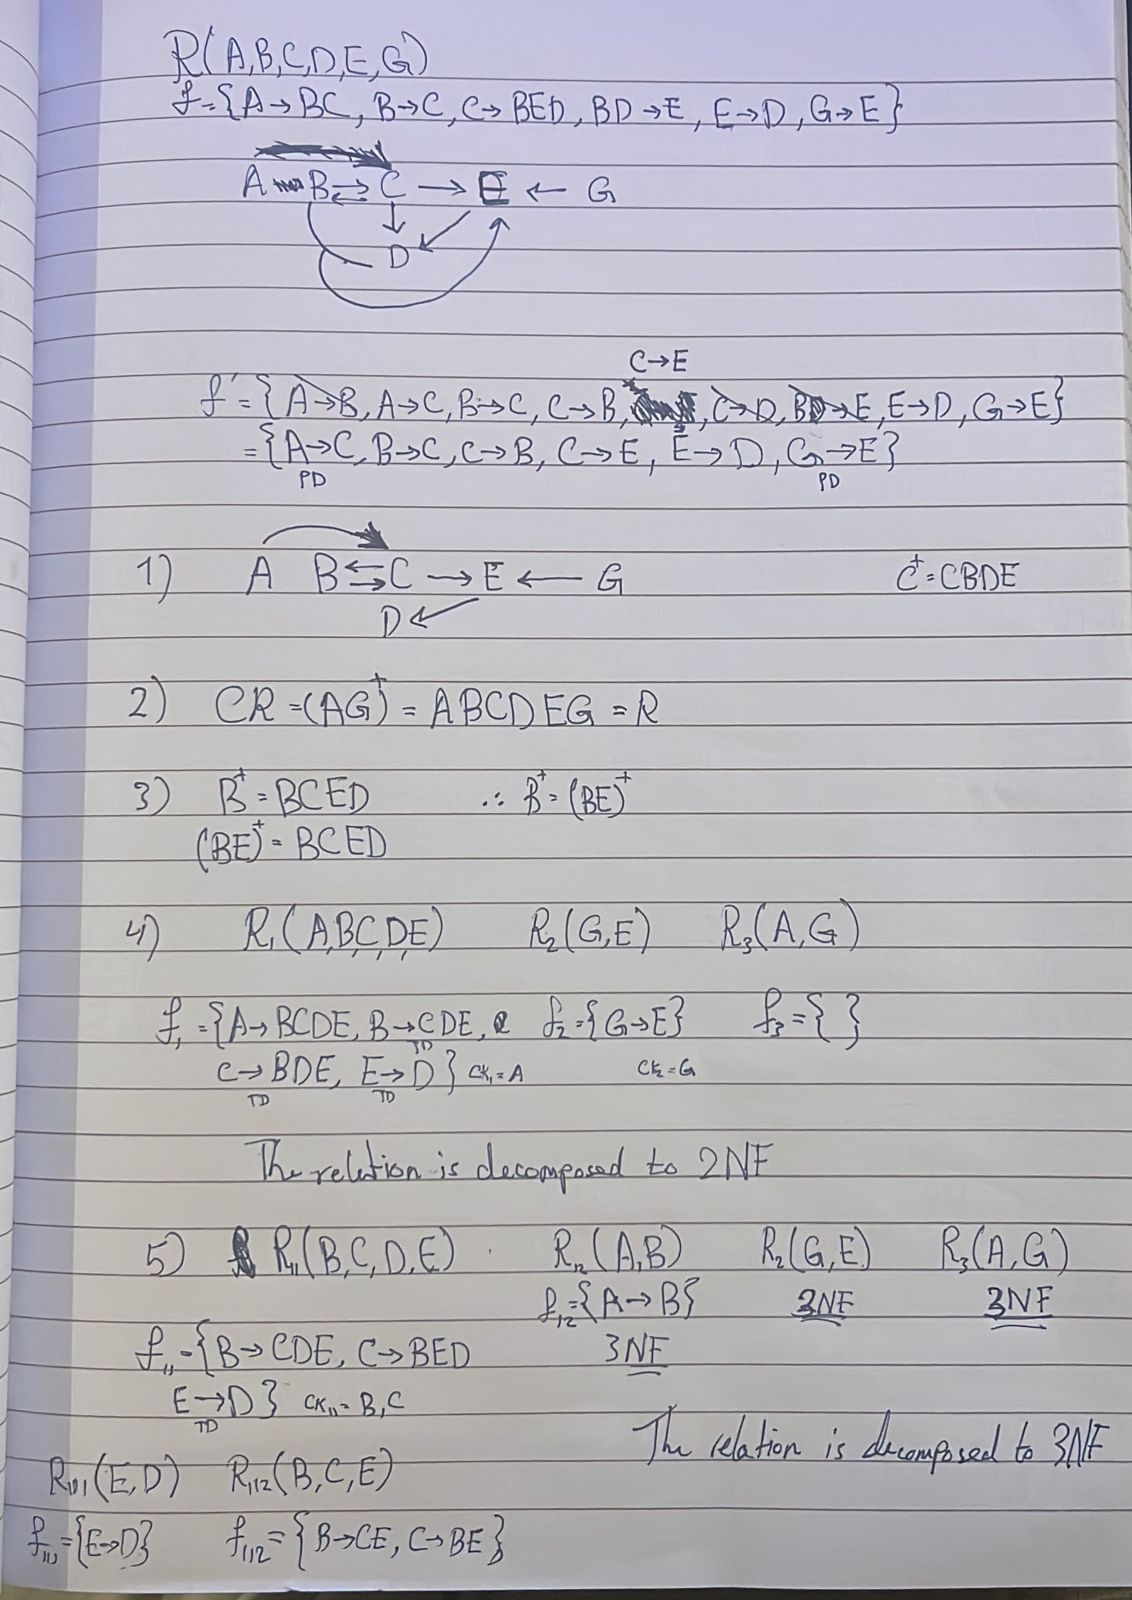 R(A,B,C,D,E,G)
f={A→BC, B→C, C→BED, BD→E, E→D, G→E}
A B⇄C → E ← G
D
C→E
f'={A→B, A→C, B→C, C→B, C→D, BD→E, E→D, G→E}
={A→C, B→C, C→B, C→E, E→D, G→E}
PD PD
1) A B⇄C → E ← G C⁺=CBDE
D
2) CR=(AG)⁺=ABCDEG=R
3) B⁺=BCED ∴ B⁺=(BE)⁺
(BE)⁺=BCED
4) R₁(A,B,C,D,E) R₂(G,E) R₃(A,G)
f₁={A→BCDE, B→CDE, f₂={G→E} f₃={ }
TD
C→BDE, E→D} CK₁=A CK₂=G
TD TD
The relation is decomposed to 2NF
5) R₁₁(B,C,D,E) R₁₂(A,B) R₂(G,E) R₃(A,G)
f₁₂={A→B} 3NF 3NF
f₁₁={B→CDE, C→BED 3NF
E→D} CK₁₁=B,C
TD
The relation is decomposed to 3NF
R₁₁₁(E,D) R₁₁₂(B,C,E)
f₁₁₁={E→D} f₁₁₂={B→CE, C→BE}